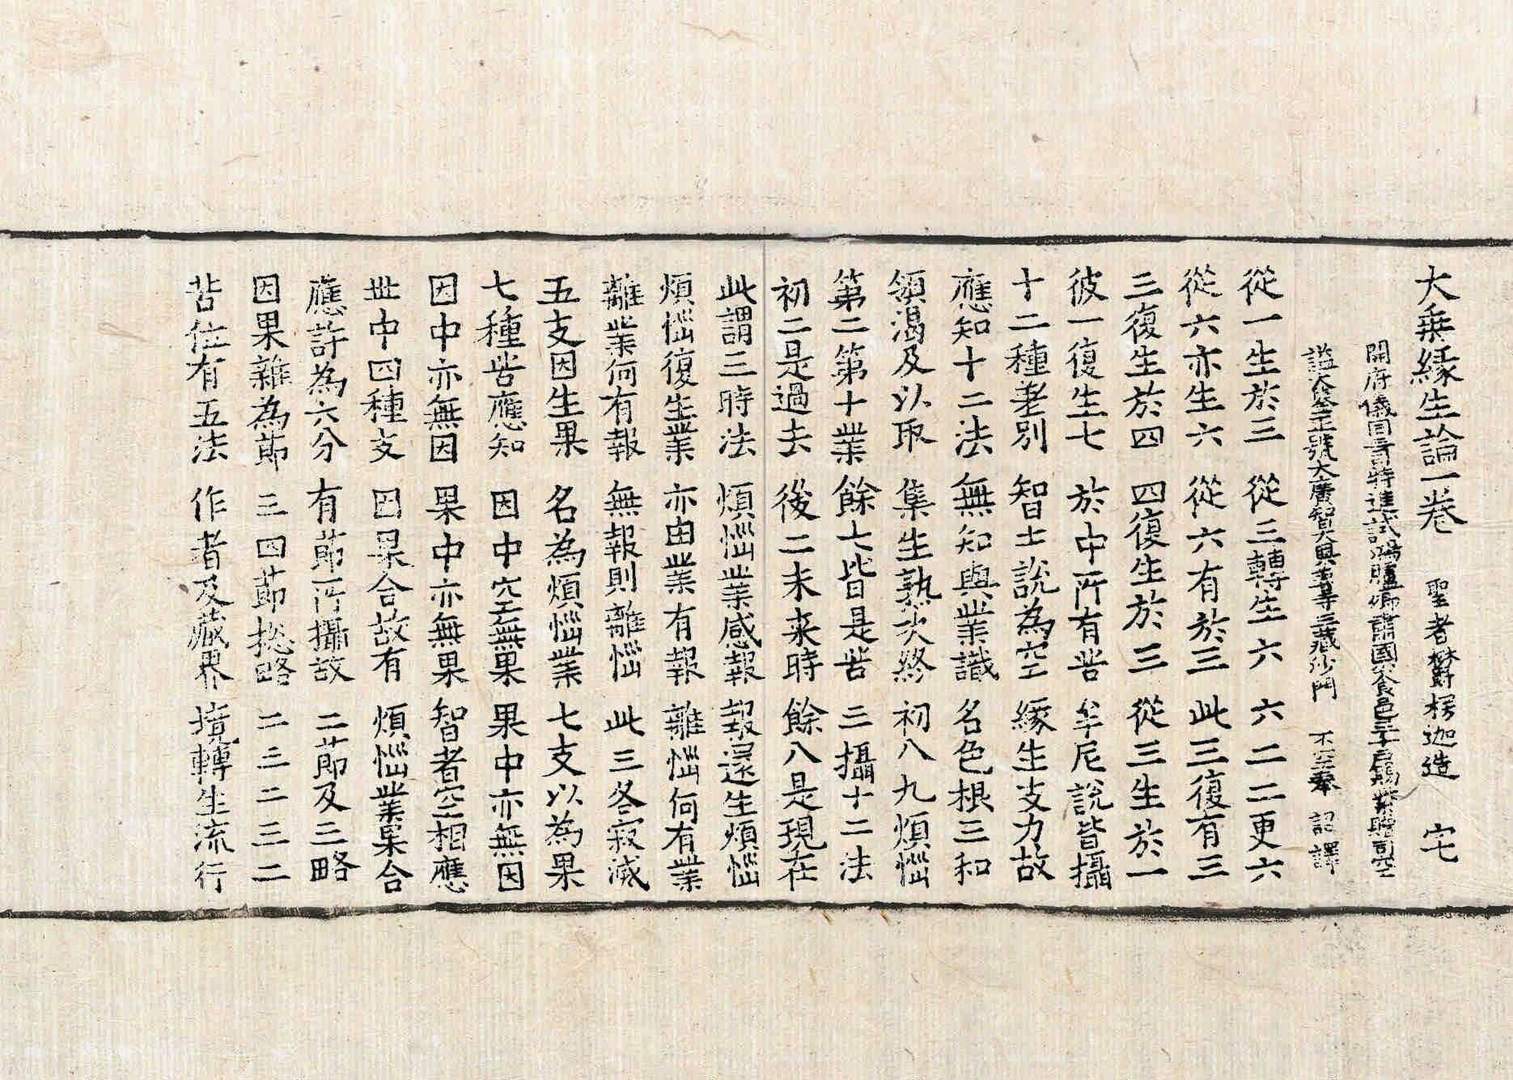 大乗縁生論一卷 聖者欝楞迦造 宅
開府儀同三司特進試鴻臚卿肅國公食邑三千戶賜紫贈司空
謚大鑒正號大廣智大興善寺三藏沙門 不空奉 詔譯
從一生於三 從三轉生六 六二二更六
從六亦生六 從六有於三 此三復有三
三復生於四 四復生於三 從三生於一
彼一復生七 於中所有苦 牟尼說皆攝
十二種差別 智士說為空 緣生支力故
應知十二法 無知與業識 名色根三和
領渇及以取 集生熟次終 初八九煩惱
第二第十業 餘七皆是苦 三攝十二法
初二是過去 後二未来時 餘八是現在
此謂三時法 煩惱業感報 報還生煩惱
煩惱復生業 亦由業有報 離惱何有業
離業何有報 無報則離惱 此三各寂滅
五支因生果 名為煩惱業 七支以為果
七種苦應知 因中空無果 果中亦無因
因中亦無因 果中亦無果 智者空相應
世中四種支 因果合故有 煩惱業果合
應許為六分 有節所攝故 二節及三略
因果雜為節 三四節揔略 二三二三二
苦位有五法 作者及藏界 境轉生流行